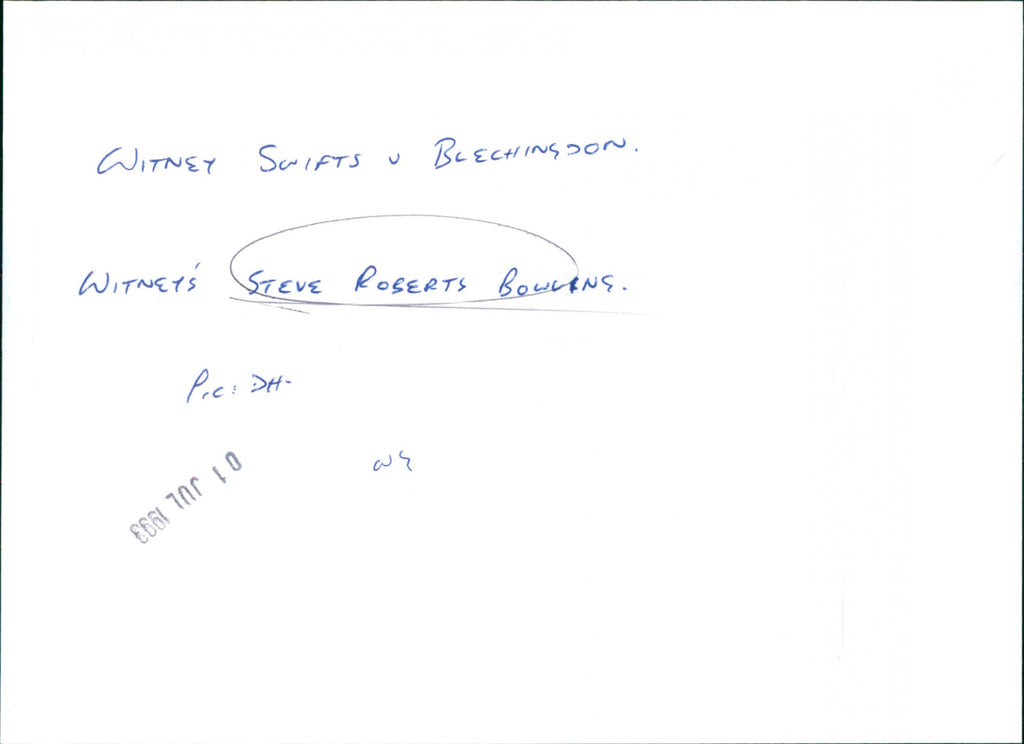 WITNEY SWIFTS v BLECHINGDON.
WITNEY'S STEVE ROBERTS BOWLING.
P.c: DH-
WG
01 JUL 1993